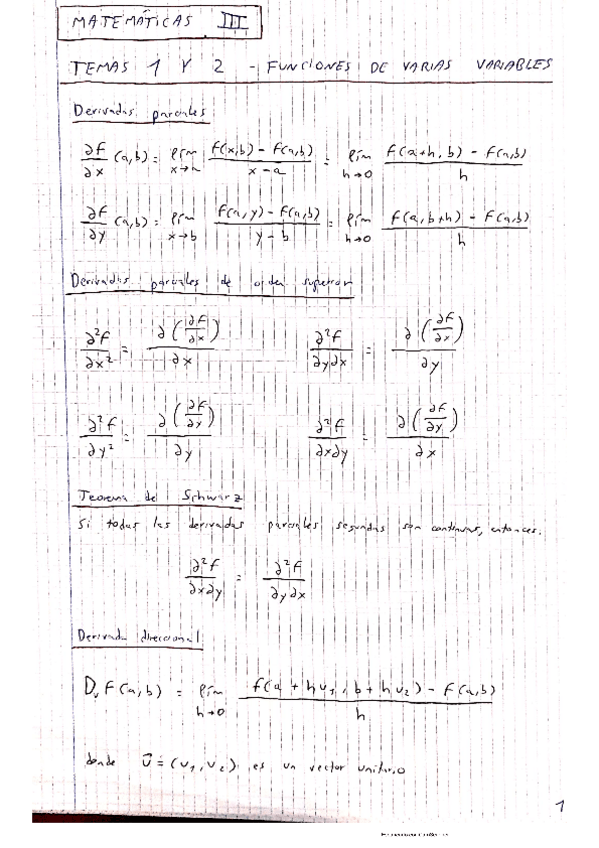 MATEMÁTICAS III
TEMAS 1 Y 2 - FUNCIONES DE VARIAS VARIABLES
Derivadas parciales
∂f/∂x (a,b) = lím x→a (f(x,b) - f(a,b))/(x - a) = lím h→0 (f(a+h, b) - f(a,b))/h
∂f/∂y (a,b) = lím x→b (f(a,y) - f(a,b))/(y - b) = lím h→0 (f(a,b+h) - f(a,b))/h
Derivadas parciales de orden superior
∂²f/∂x² = ∂(∂f/∂x)/∂x    ∂²f/∂y∂x = ∂(∂f/∂x)/∂y
∂²f/∂y² = ∂(∂f/∂y)/∂y    ∂²f/∂x∂y = ∂(∂f/∂y)/∂x
Teorema de Schwarz
Si todas las derivadas parciales segundas son continuas, entonces.
∂²f/∂x∂y = ∂²f/∂y∂x
Derivada direccional
Dᵥ f(a,b) = lím h→0 (f(a + hv₁, b + hv₂) - f(a,b))/h
donde v̄ = (v₁, v₂) es un vector unitario
1